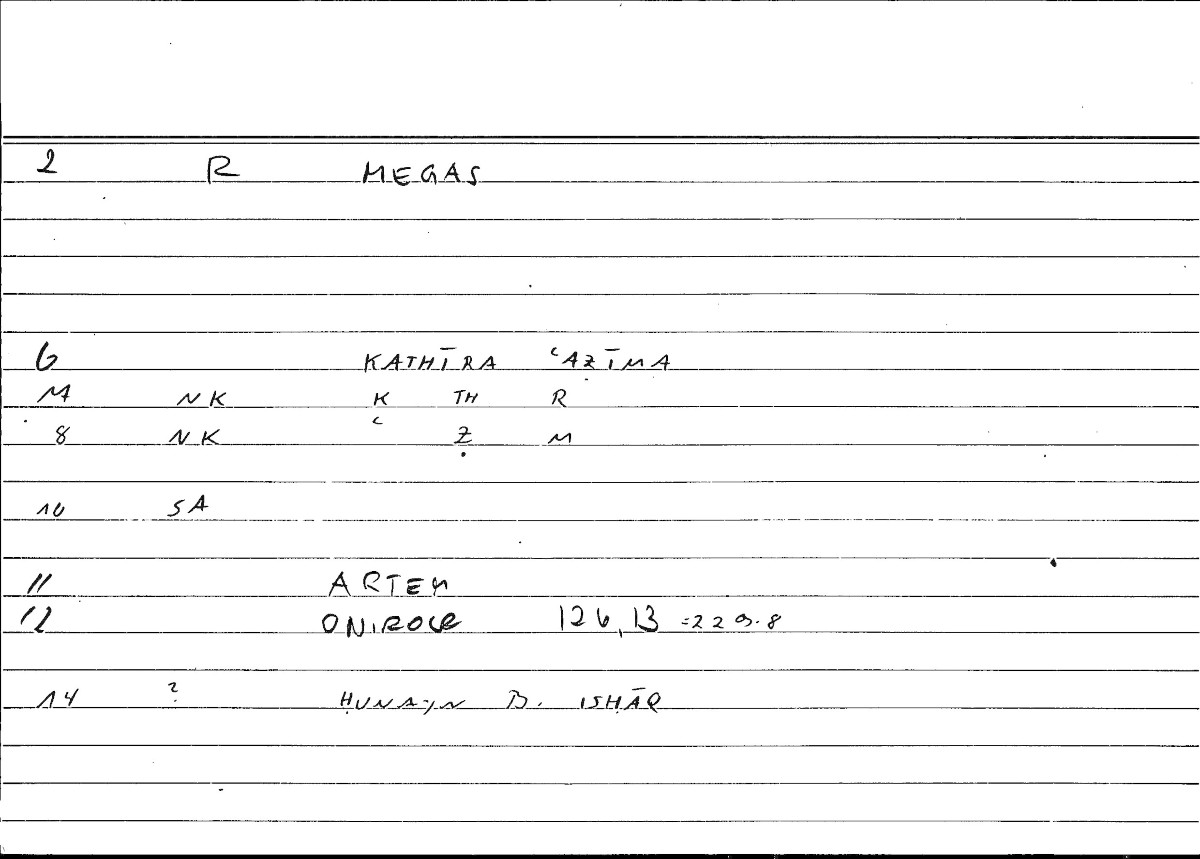 2 R MEGAS
6 KATHĪRA ʿAẒĪMA
M NK K TH R
8 NK ʿ Ẓ M
10 SA
11 ARTEM
12 ONIROCR 126,13 =229.8
14 ? ḤUNAYN B. ISḤĀQ